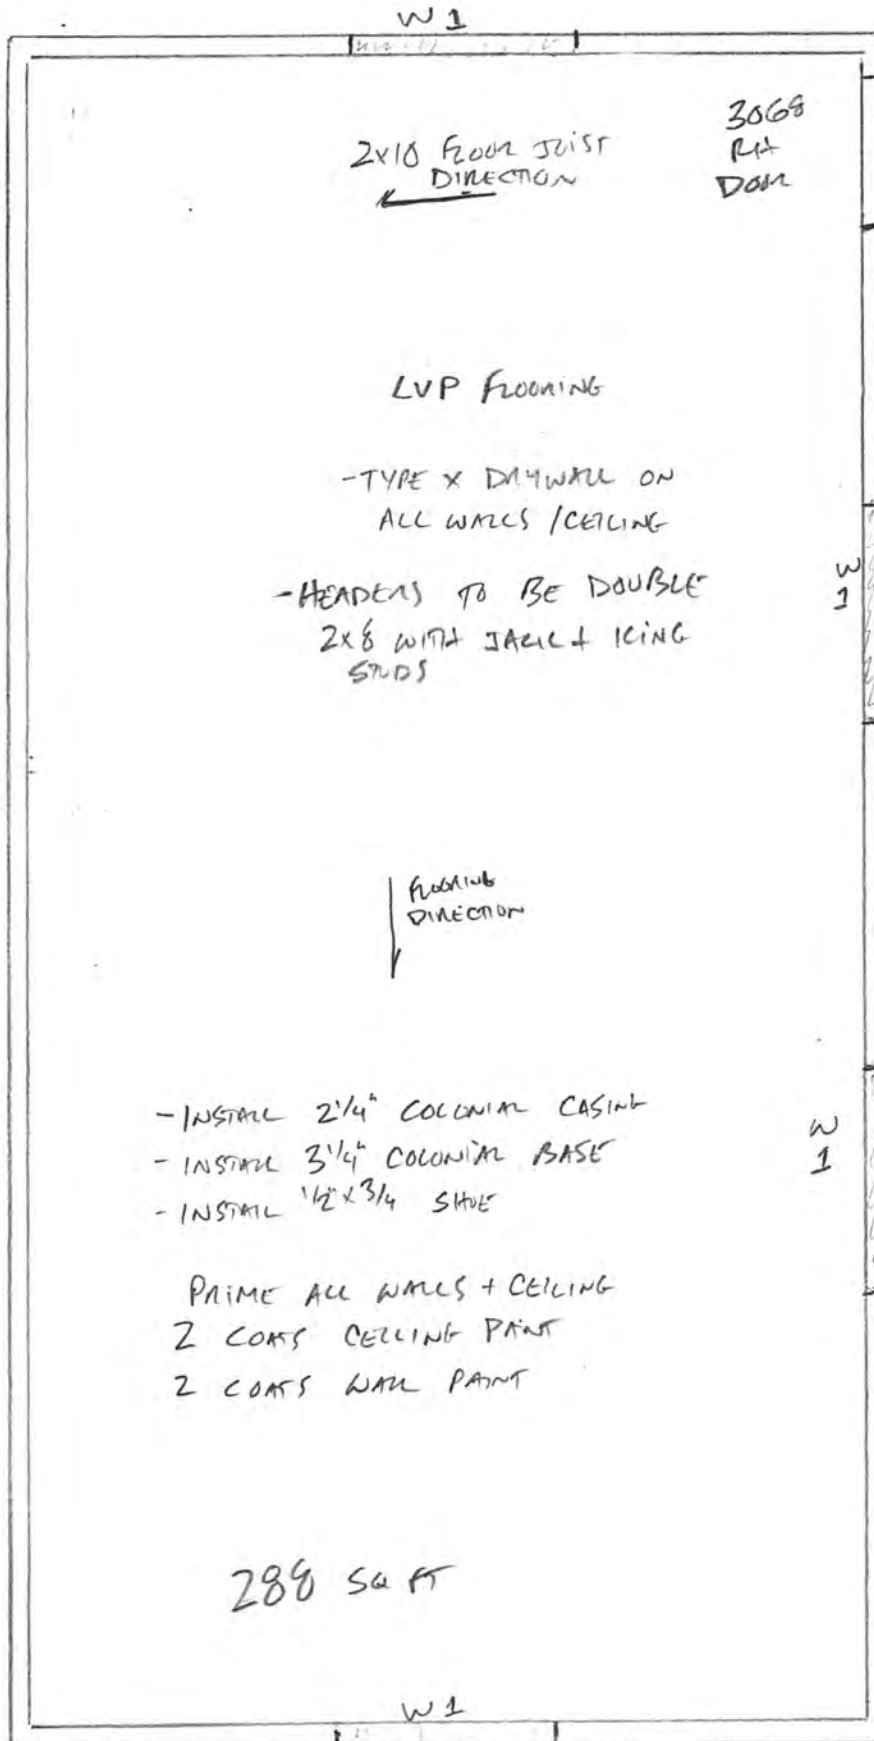 W1
2x10 FLOOR JOIST
DIRECTION
3068
RH
DOOR
LVP FLOORING
-TYPE X DRYWALL ON
ALL WALLS / CEILING
-HEADERS TO BE DOUBLE
2x8 WITH JACK + KING
STUDS
W
1
FLOORING
DIRECTION
- INSTALL 2 1/4" COLONIAL CASING
- INSTALL 3 1/4" COLONIAL BASE
- INSTALL 1/2" x 3/4 SHOE
W
1
PRIME ALL WALLS + CEILING
2 COATS CEILING PAINT
2 COATS WALL PAINT
288 SQ FT
W1